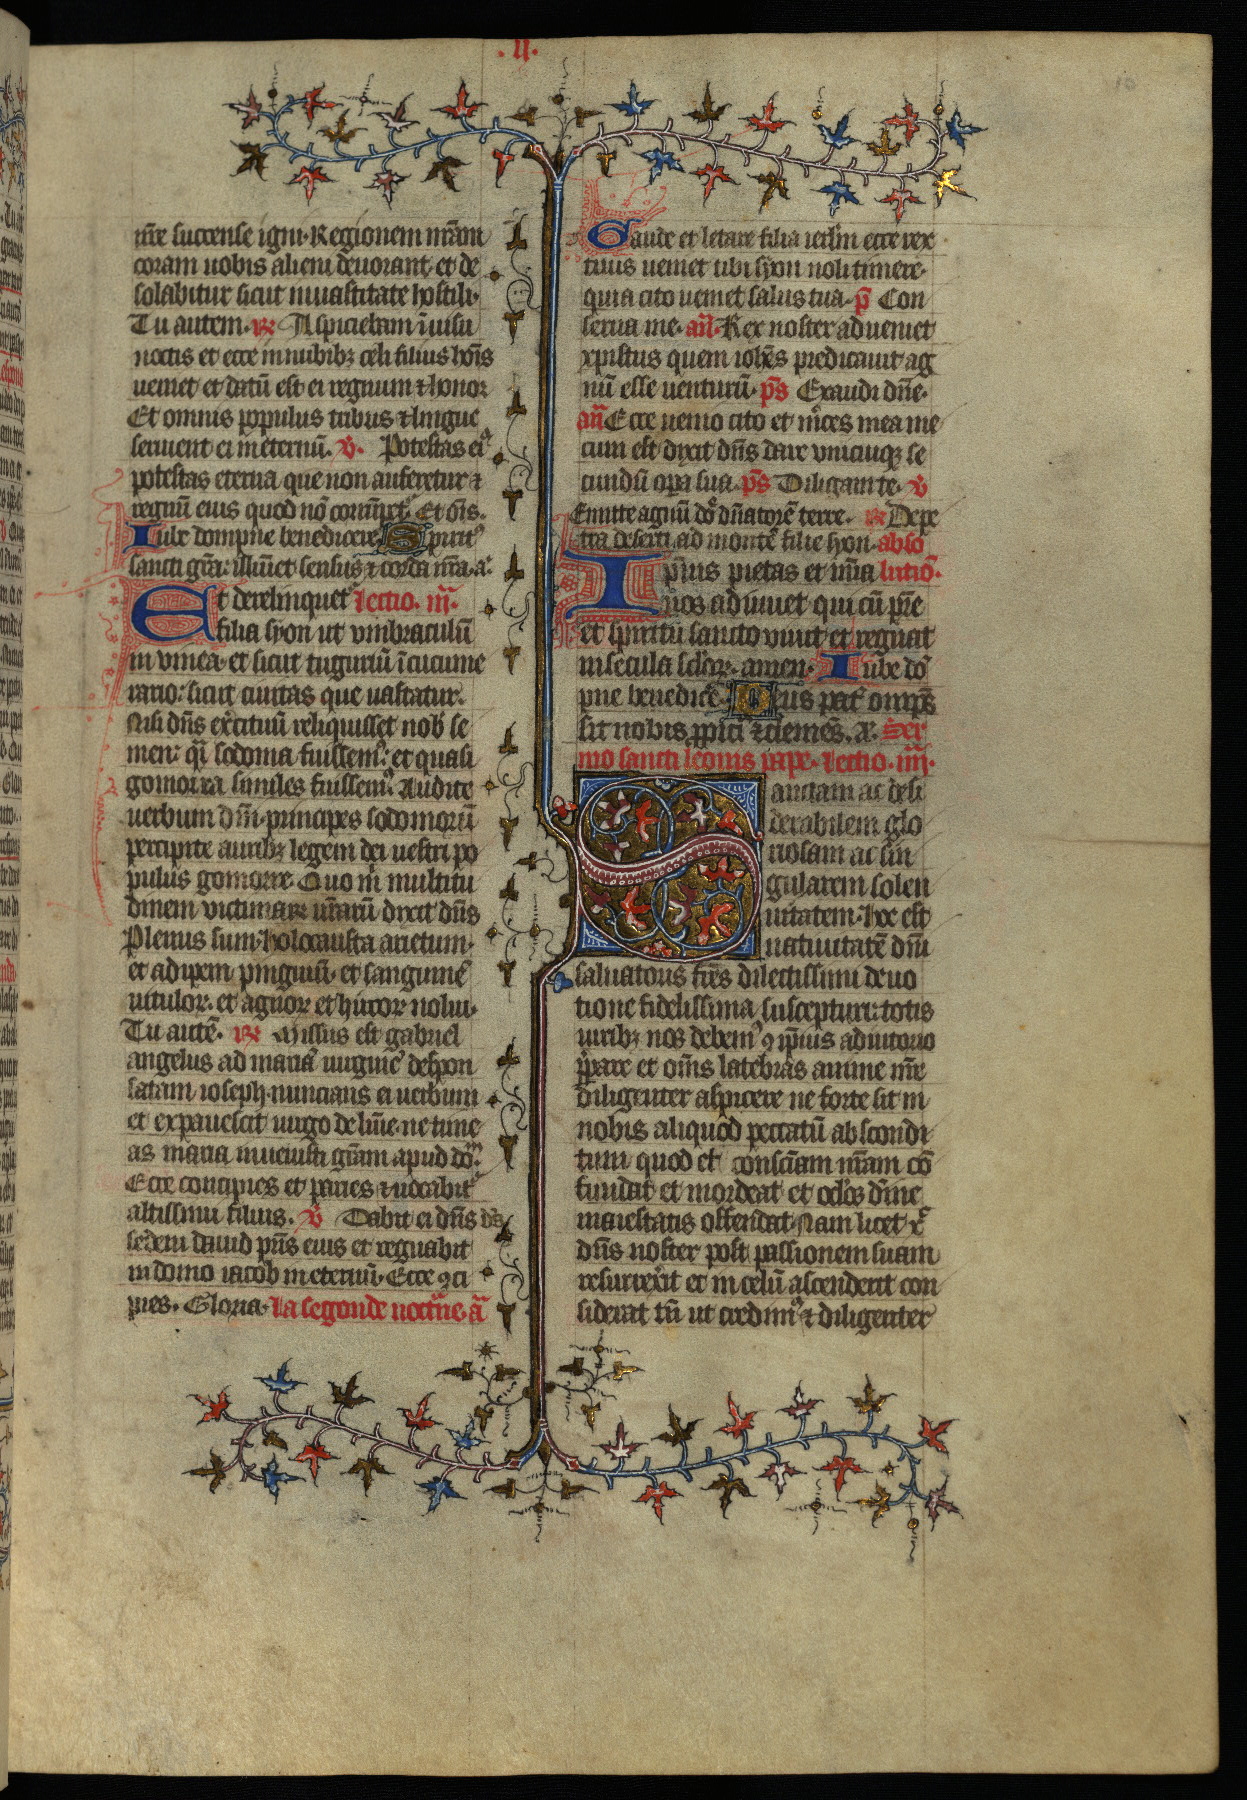 .II.
10
nr̄e succense igni. Regionem nr̄am
coram uobis alieni deuorant. et de
solabitur sicut in uastitate hostili.
Tu autem. R̄ Aspiciebam ī uisu
noctis et ecce in nubibꝫ celi filius hōis
ueniet et datū est ei regnum ⁊ honor
Et omnis populus tribus ⁊ lingue
seruient ei in eternū. v̄. Potestas eiꝰ
potestas eterna que non auferetur ⁊
regnū eius quod nō corrūpet᷑. Et ōis.
Iube dompne benedicere. Spiritꝰ
sancti grā: illūiet sensus ⁊ corda nr̄a. aꝰ.
Et derelinquet᷑ lectio. iij.
filia syon ut vmbraculū
in vinea. et sicut tuguriū ī cucume
rario: sicut ciuitas que uastatur.
Nisi dn̄s exercituū reliquisset nob̄ se
men: q̄si sodoma fuissemꝰ: et quasi
gomorra similes fuissemꝰ. Audite
uerbum dn̄i. principes sodomorū
percipite auribꝫ legem dei uestri po
pulus gomorre. Quo m̄ multitu
dinem victimarū ur̄arū dixit dn̄s
Plenus sum. holocausta arietum.
et adipem pinguiū. et sanguinē
uitulorꝝ. et agnorꝝ et hircorꝝ nolui.
Tu autē. R̄ Missus est gabriel
angelus ad mariā uirginē despon
satam ioseph. nuncians ei uerbum
et expauescit uirgo de lūie. ne time
as maria inuenisti grām apud dōm̄.
Ecce concipies et paries ⁊ uocabit᷑
altissimi filius. v̄ Dabit ei dn̄s dꝰs
sedem dauid pr̄is eius et regnabit
in domo iacob in eternū. Ecce ꝯci
pies. Gloria. La segonde noct᷑ne. ā
Gaude et letare filia ier̄lm ecce rex
tuus ueniet tibi syon noli timere.
quia cito ueniet salus tua. p̄ Con
serua me. an̄. Rex noster adueniet
xpistus quem ioh̄es predicauit ag
nū esse uenturū. p̄s Exaudi dn̄e.
an̄ Ecce uenio cito et m̄ces mea me
cum est dixit dn̄s dare vnicuiqꝫ se
cundū opa sua. p̄s Diligam te. v̄
Emitte agnū dō dn̄atorē terre. R̄ De pe
tra deserti. ad montē filie syon. abso
Ip̄ius pietas et mīa lutiō.
nos adiuuet qui cū pr̄e
et spiritu sancto viuit et regnat
in secula sc̄lorꝝ. amen. Iube dō
pne benedicē. Deus pat᷑ omp̄s
sit nobis ꝓpiciꝰ ⁊ clemēs. A. Ser
mo sancti leonis pape. lectio. iiij.
Sanctam ac desi
derabilem glo
riosam ac sin
gularem solen
nitatem. hoc est
natiuitatē dn̄i
saluatoris fr̄es dilectissimi deuo
tione fidelissima suscepturi: totis
uiribꝫ nos debemꝰ ꝯ ip̄ius adiutorio
p̄parare et om̄s latebras anime nr̄e
diligenter aspicere ne forte sit in
nobis aliquod peccatū abscondi
tum quod et consciām nr̄am cō
fundat et mordeat et oc̄los diuine
maiestatis offendat. Nam licet xꝰ
dn̄s noster post passionem suam
resurrexit et in celū ascenderit con
siderat tn̄ ut credimꝰ ⁊ diligenter